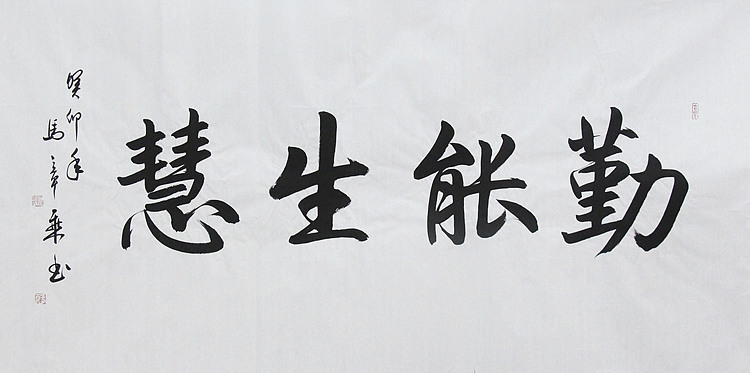 勤能生慧
癸卯年
馬章乘书